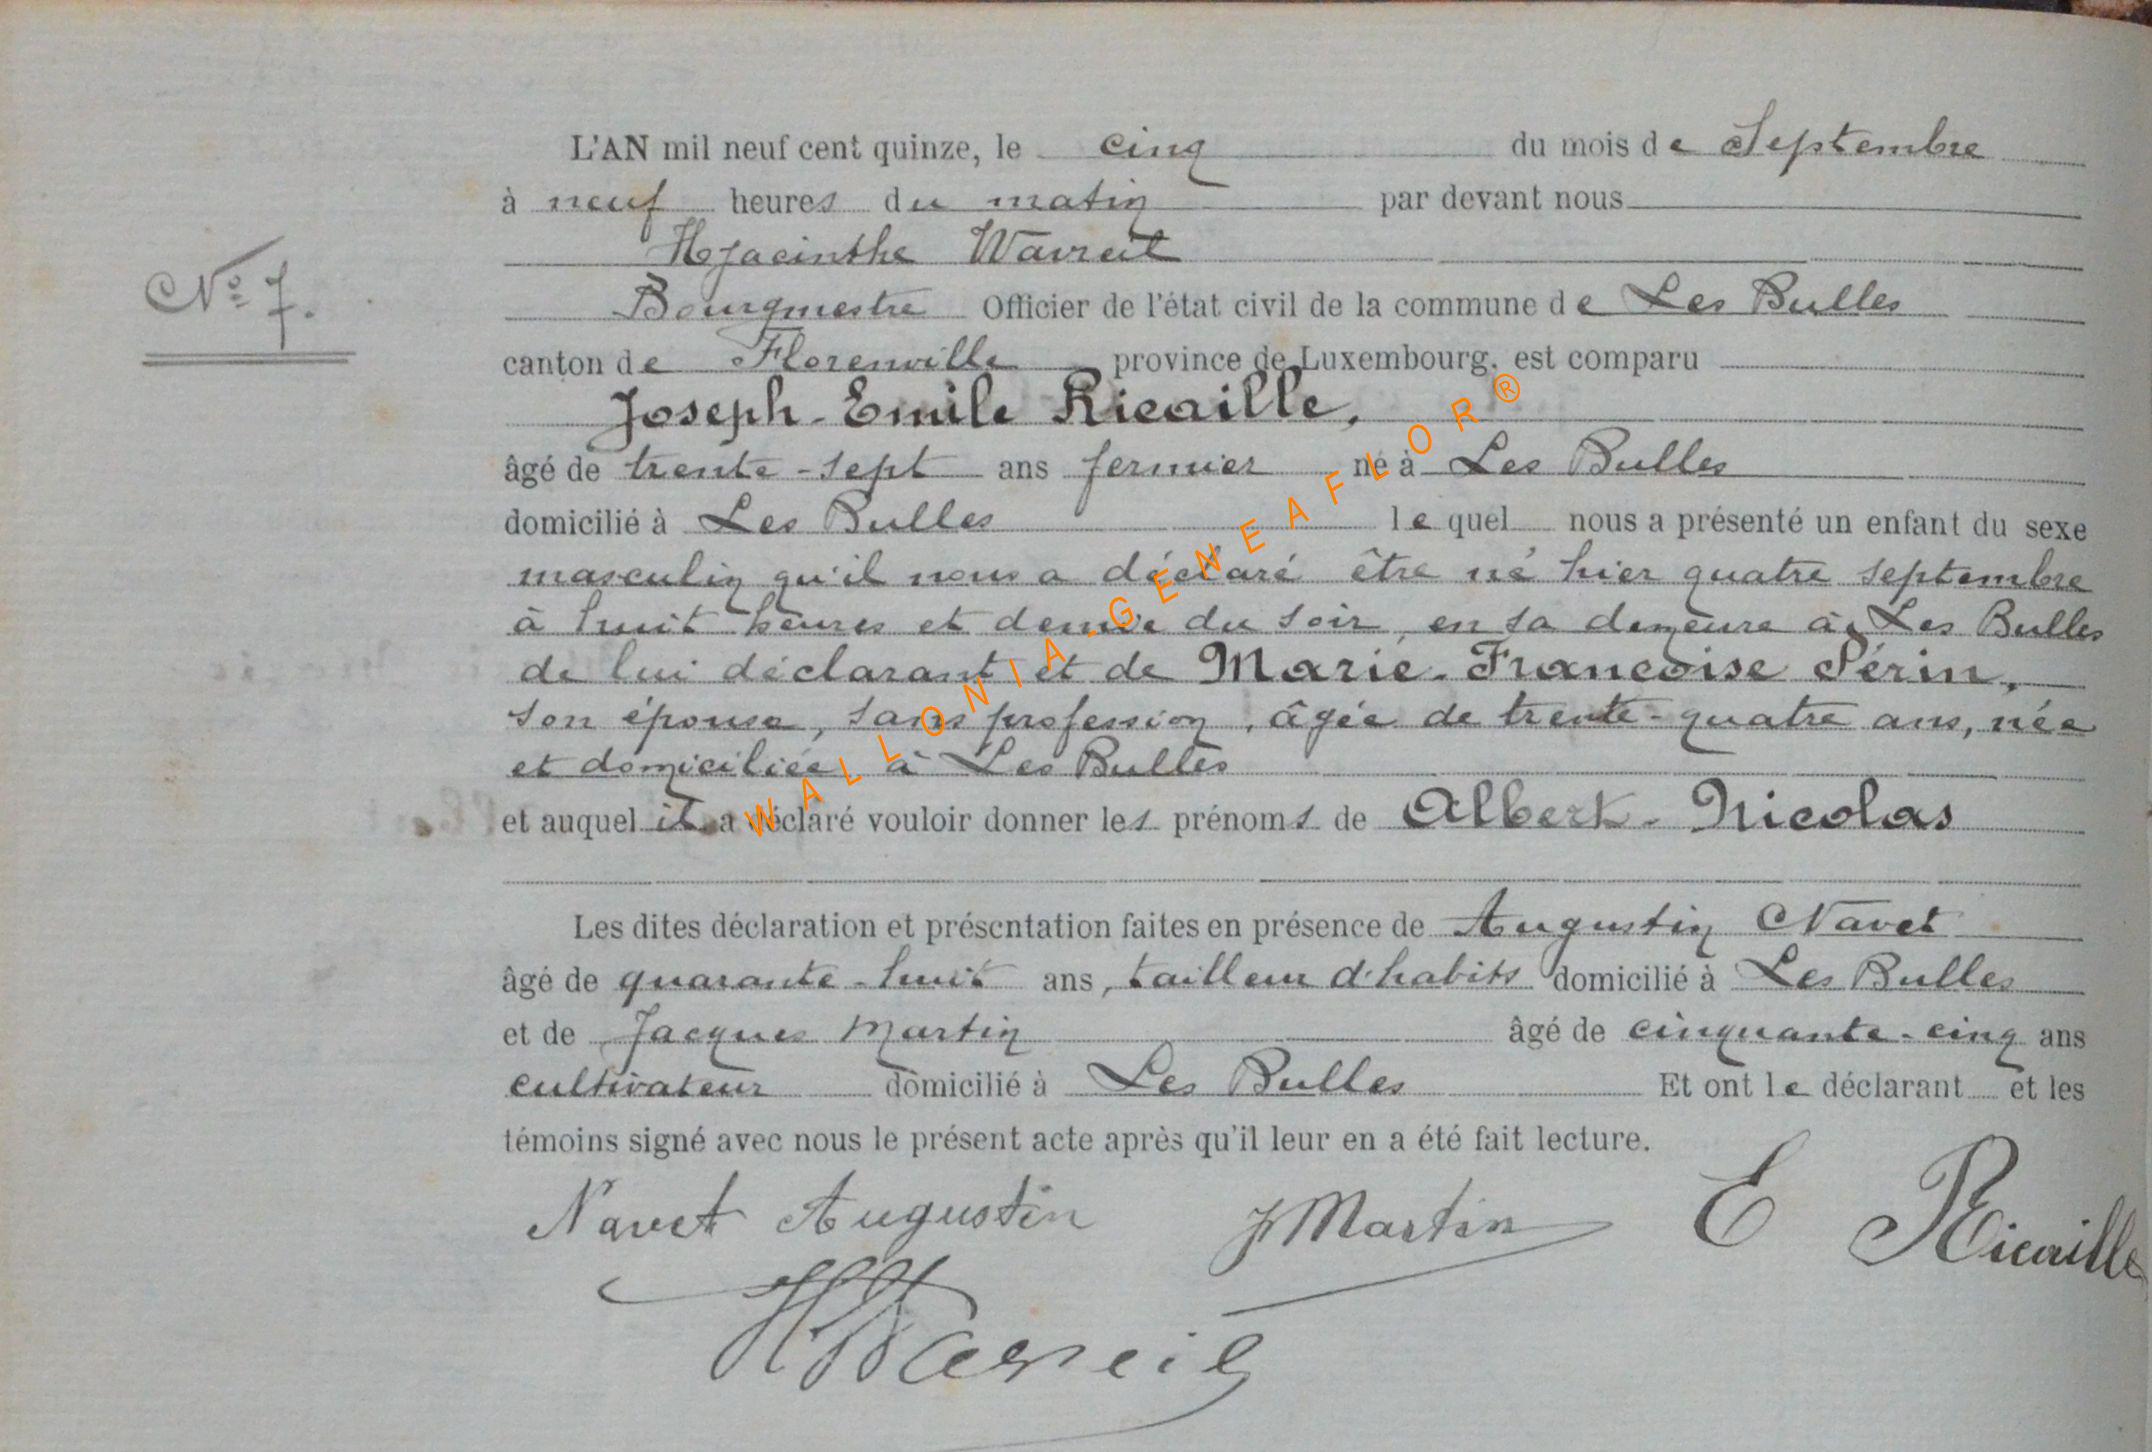 L'AN mil neuf cent quinze, le cinq du mois de Septembre
à neuf heures du matin par devant nous
Hyacinthe Wavreil
N° 7.
Bourgmestre Officier de l'état civil de la commune de Les Bulles
canton de Florenville province de Luxembourg, est comparu
Joseph-Emile Ricaille,
âgé de trente-sept ans fermier né à Les Bulles
domicilié à Les Bulles lequel nous a présenté un enfant du sexe
masculin qu'il nous a déclaré être né hier quatre septembre
à huit heures et demie du soir, en sa demeure à Les Bulles
de lui déclarant et de Marie-Françoise Périn,
son épouse, sans profession, âgée de trente-quatre ans, née
et domiciliée à Les Bulles
et auquel il a déclaré vouloir donner les prénoms de Albert-Nicolas
Les dites déclaration et présentation faites en présence de Augustin Navet
âgé de quarante-huit ans, tailleur d'habits domicilié à Les Bulles
et de Jacques Martin âgé de cinquante-cinq ans
cultivateur domicilié à Les Bulles Et ont le déclarant et les
témoins signé avec nous le présent acte après qu'il leur en a été fait lecture.
Navet Augustin J Martin E Ricaille
H Wavreil
WALLONIA-GENEAFLOR®